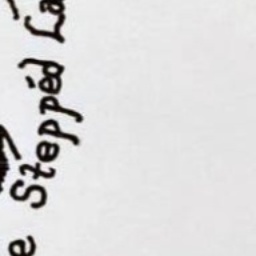 e Steppéd La